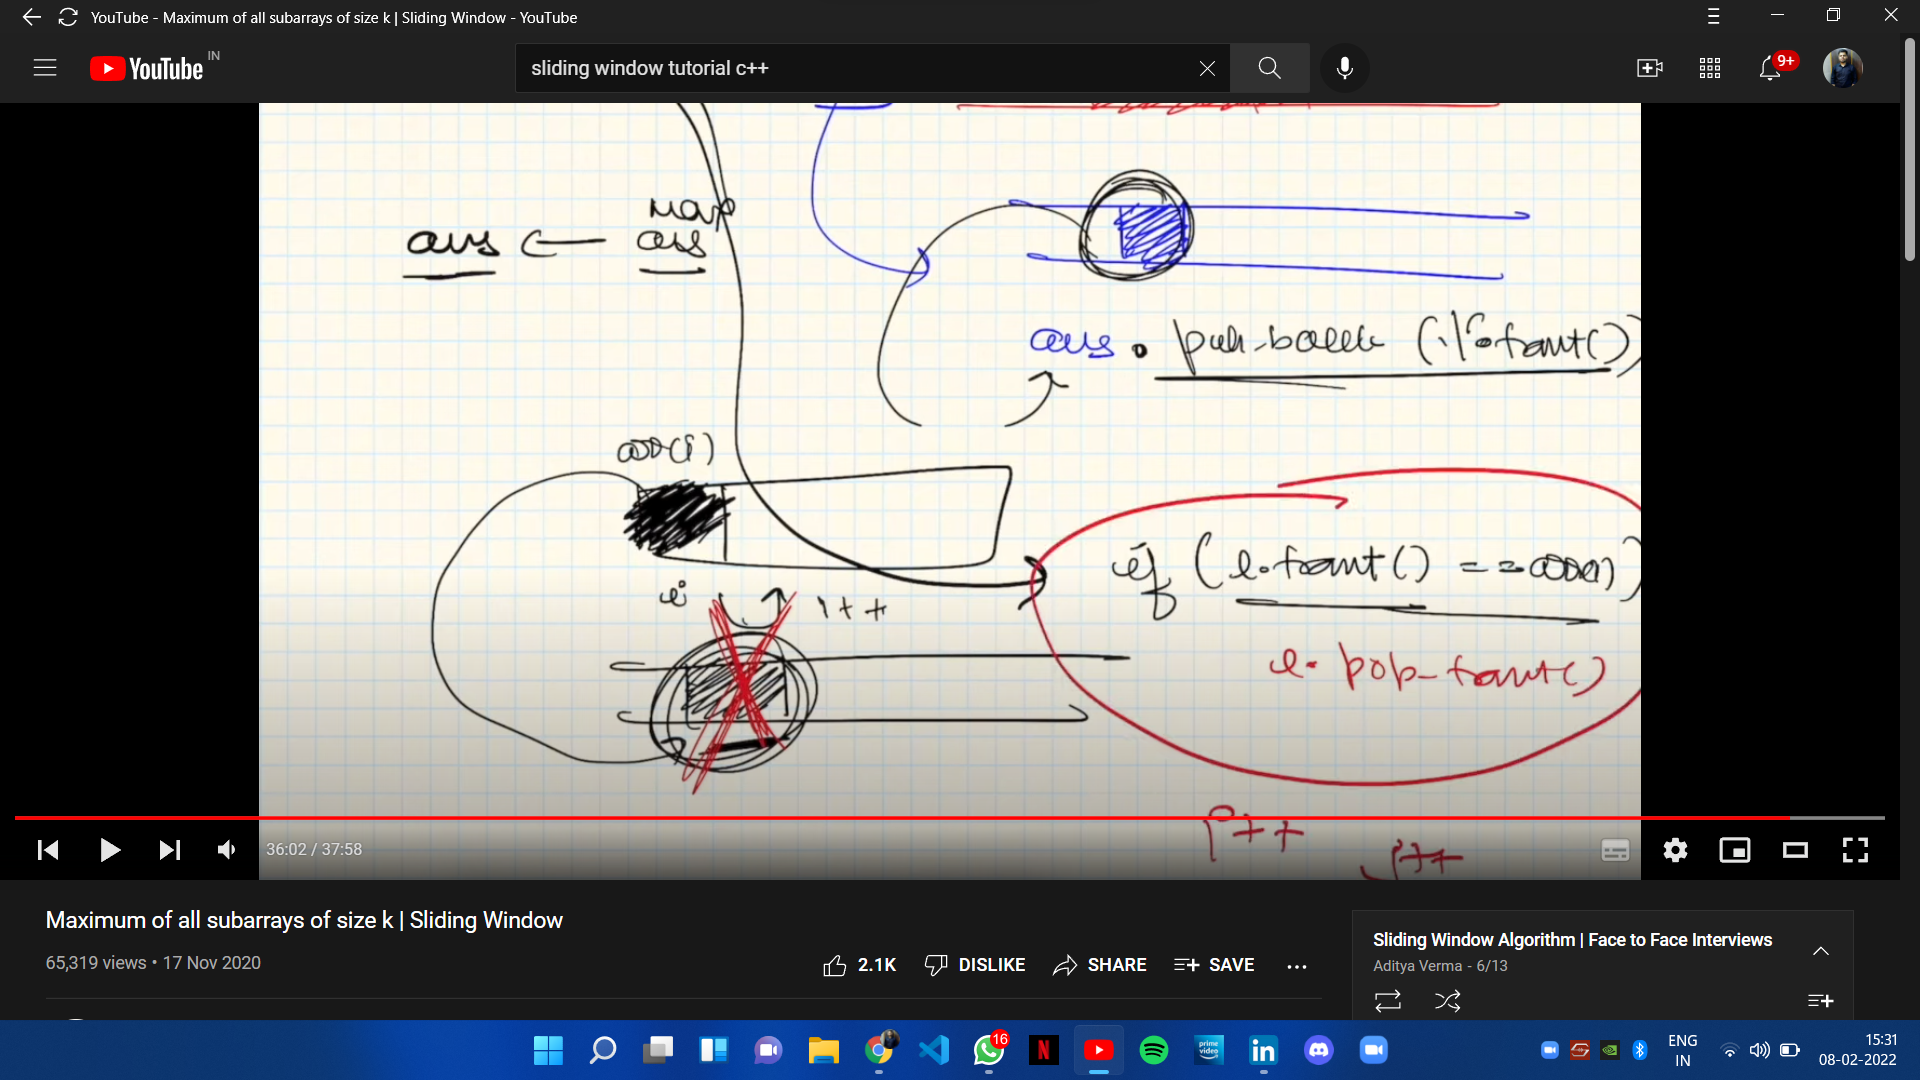 YouTube - Maximum of all subarrays of size k | Sliding Window - YouTube
YouTube IN
sliding window tutorial c++
9+
Max
ans ← ans
ans . push-back (l.front()
arr(i)
if (l.front() ==
i i++
l. pop-front()
i++
j++
36:02 / 37:58
Maximum of all subarrays of size k | Sliding Window
65,319 views • 17 Nov 2020
2.1K DISLIKE SHARE SAVE
Sliding Window Algorithm | Face to Face Interviews
Aditya Verma - 6/13
16
N
prime video
in
ENG
IN
15:31
08-02-2022